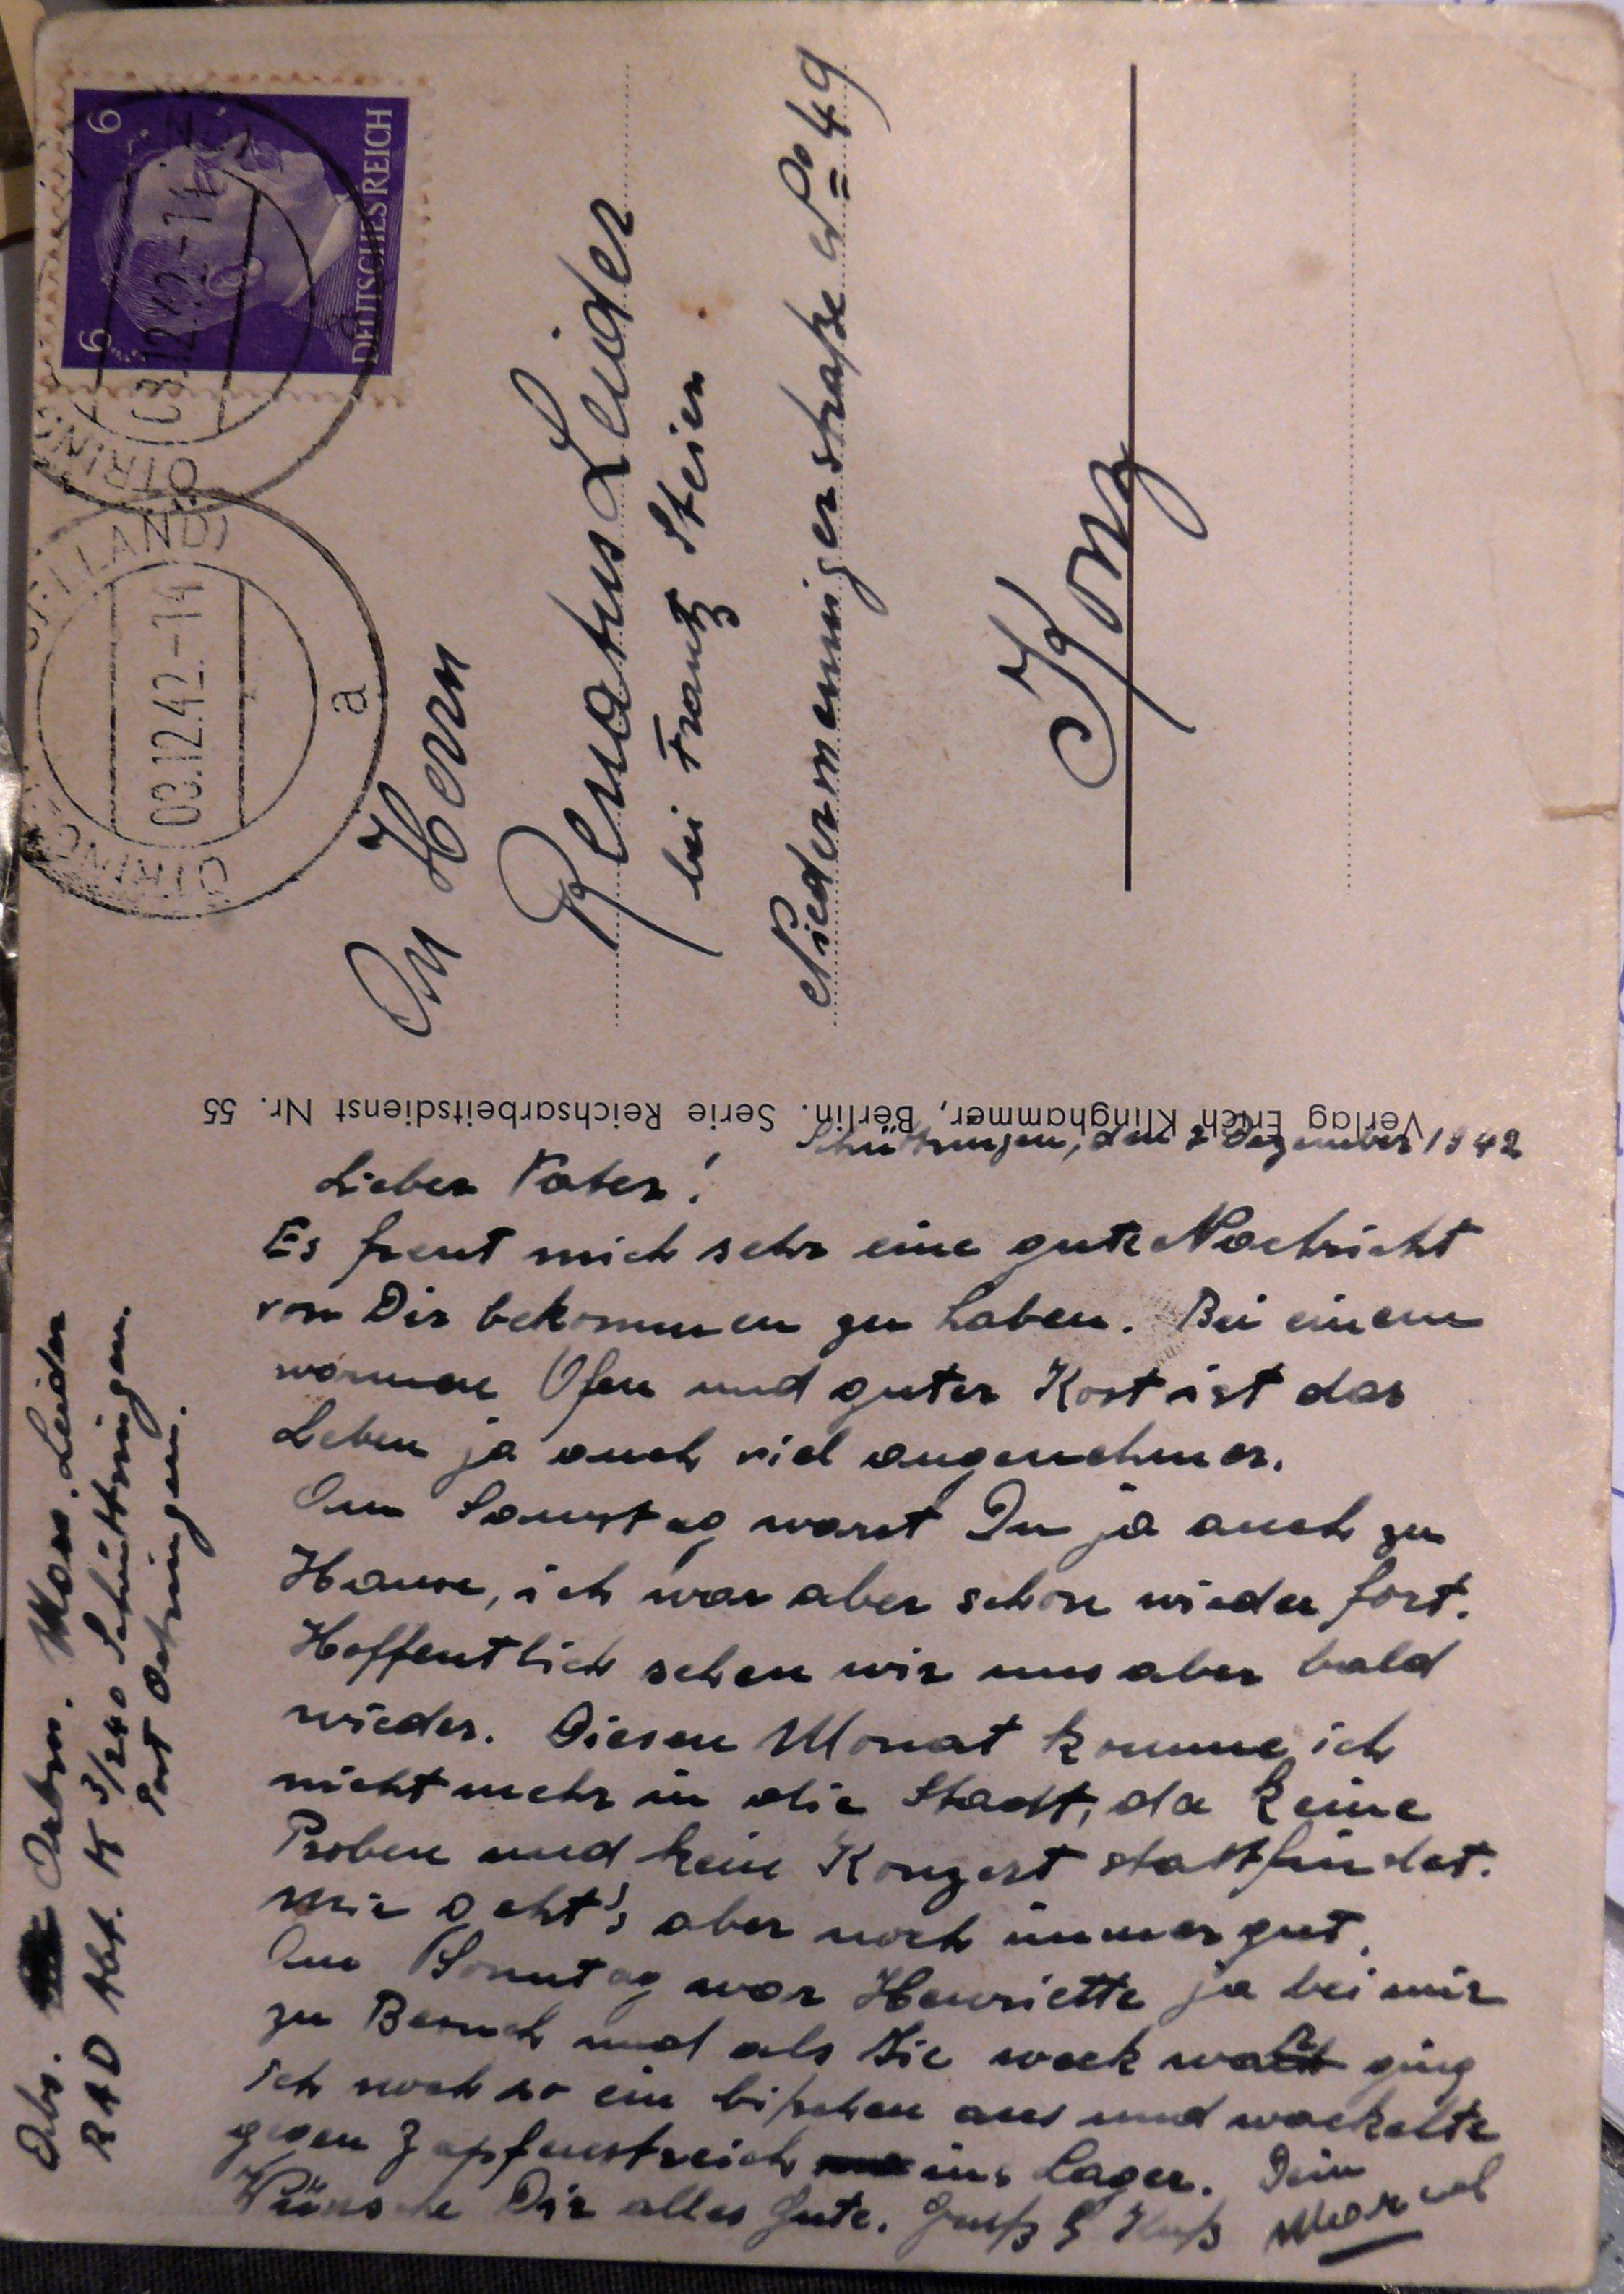 6 6
DEUTSCHES REICH
03.12.42.-14
ÖTRING
03.12.42.-14
ÖTRING
LAND)
a
An Herrn
Renatus Leider
bei Frantz Steier
Niedermenniger straße No 49
Konz
Verlag Erich Klinghammer, Berlin. Serie Reichsarbeitsdienst Nr. 55
Abs. Arbm. Marc. Leider
RAD Abt. K 3/240 Schüttringen.
Post Oetringen.
Schüttringen, den 2 Dezember 1942
Lieber Vater!
Es freut mich sehr eine gute Nachricht
von Dir bekommen zu haben. Bei einem
warmen Ofen und guter Kost ist das
Leben ja auch viel angenehmer.
Am Samstag warst Du ja auch zu
Hause, ich war aber schon wieder fort.
Hoffentlich sehen wir uns aber bald
wieder. Diesen Monat komme ich
nicht mehr in die Stadt, da keine
Proben und kein Konzert stattfindet.
Mir geht's aber noch immer gut.
Am Sonntag war Henriette ja bei mir
zu Besuch und als Sie weck war ging
ich noch so ein bißchen aus und wackelte
gegen Zapfenstreich ins Lager. Dein
Wünsche Dir alles Gute. Gruß & Kuß Marcel